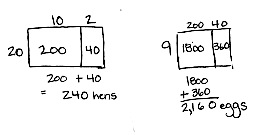 10 2
20 200 40
200 + 40
= 240 hens
200 40
9 1800 360
1800
+ 360
2,160 eggs